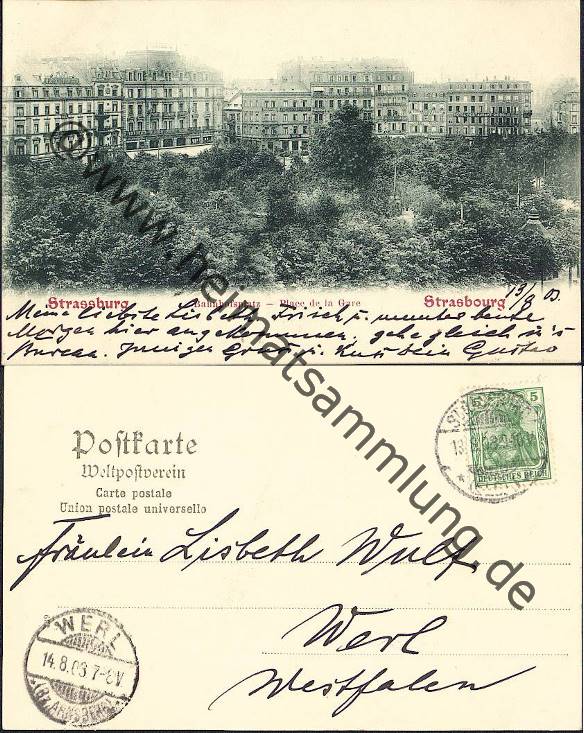 Strassburg
Bahnhofsplatz – Place de la Gare
Strasbourg
13/8 03.
Meine liebste Lisbeth, Frisch u. munter heute
Morgen hier angekommen, gehe gleich in's
Bureau. Innigen Gruss u. Kuss Dein Gustav
© www.heimatsammlung.de
Postkarte
Weltpostverein
Carte postale
Union postale universelle
5 5
DEUTSCHES REICH
Fräulein Lisbeth Wulf.
Werl
Westfalen
WERL
14.8.03 7-8V
* (BZ. ARNSBERG) *